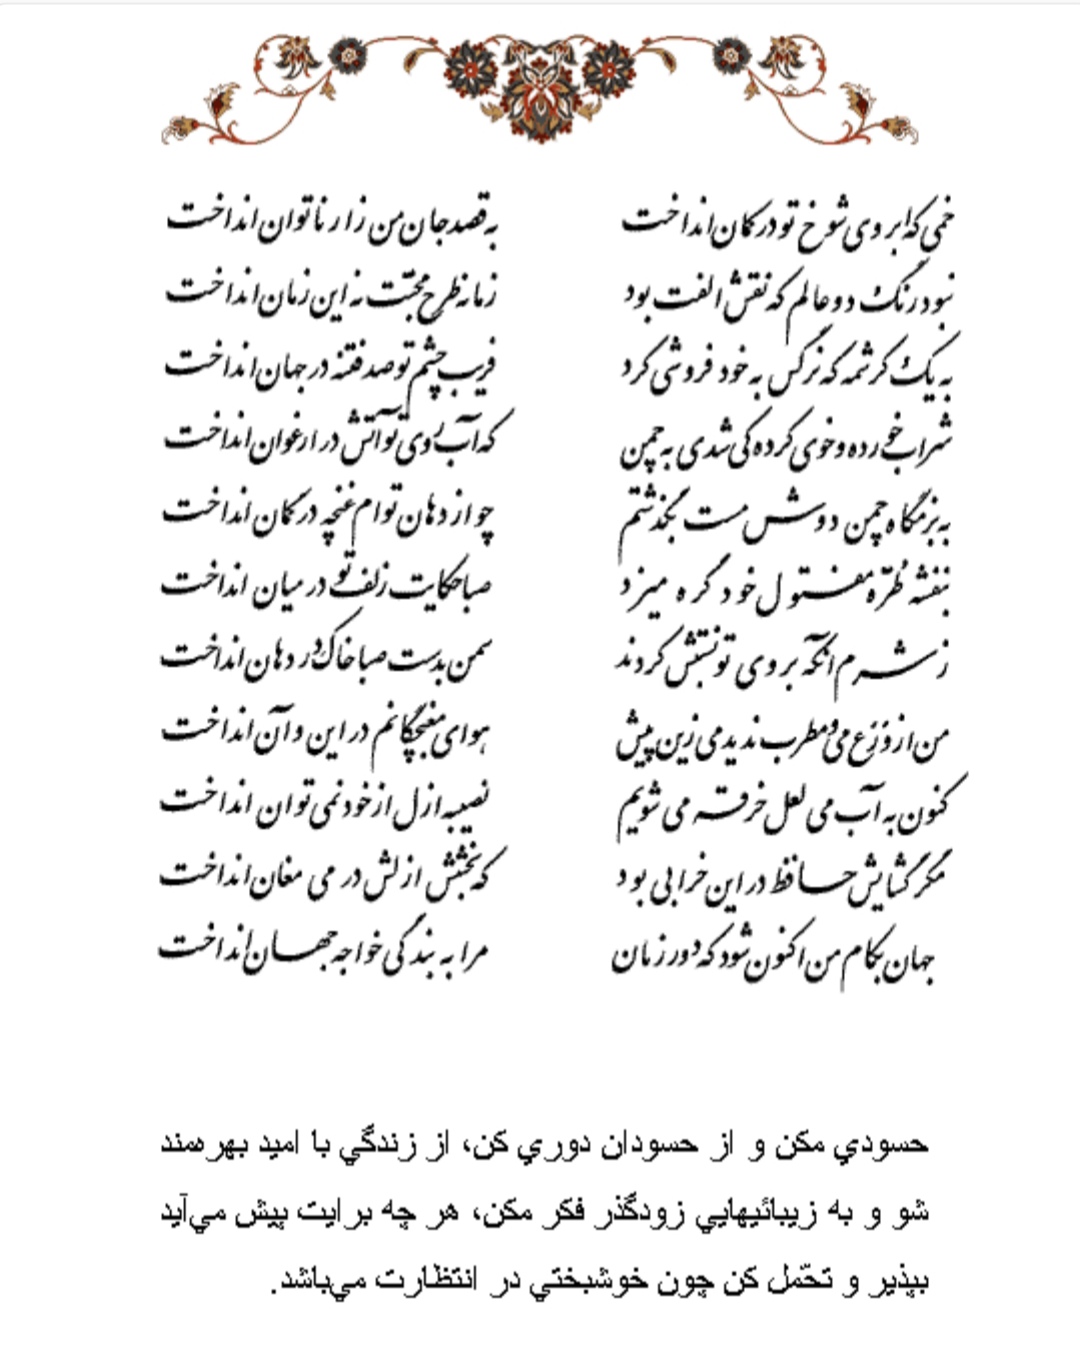 خمی که ابروی شوخ تو در کمان انداخت به قصد جان من زار ناتوان انداخت
نبود رنگ دو عالم که نقش الفت بود زمانه طرح محبّت نه این زمان انداخت
به یک کرشمه که نرگس به خود فروشی کرد فریب چشم تو صد فتنه در جهان انداخت
شراب خورده و خوی کرده کی شدی به چمن که آب روی تو آتش در ارغوان انداخت
به بزمگاه چمن دوش مست بگذشتم چو از دهان توام غنچه در گمان انداخت
بنفشه طُرّه مفتول خود گره میزد صبا حکایت زلف تو در میان انداخت
ز شرم آنکه بروی تو نسبتش کردند سمن بدست صبا خاک در دهان انداخت
من از وَرَع می و مطرب ندیدمی زین پیش هوای مغبچگانم در این و آن انداخت
کنون به آب می لعل خرقه می شویم نصیبه ازل از خود نمی توان انداخت
مگر گشایش حافظ در این خرابی بود که بخشش ازلش در می مغان انداخت
جهان بکام من اکنون شود که دور زمان مرا به بندگی خواجه جهان انداخت
حسودي مکن و از حسودان دوري کن، از زندگي با اميد بهره‌مند
شو و به زيبائيهايي زودگذر فکر مکن، هر چه برايت پيش مي‌آيد
بپذير و تحّمل کن چون خوشبختي در انتظارت مي‌باشد.